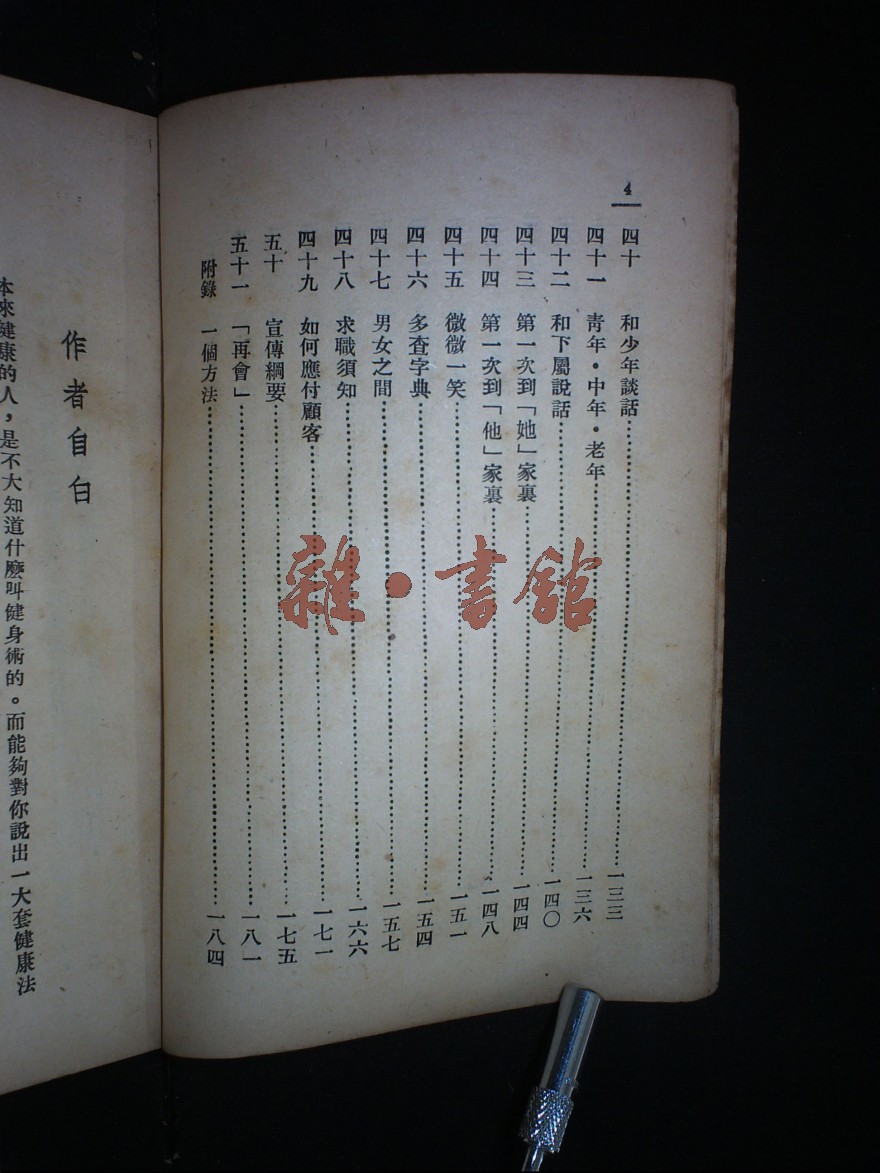 4
四十 和少年談話 一三三
四十一 靑年・中年・老年 一三六
四十二 和下屬說話 一四〇
四十三 第一次到「她」家裏 一四四
四十四 第一次到「他」家裏 一四八
四十五 微微一笑 一五一
四十六 多查字典 一五四
四十七 男女之間 一五七
四十八 求職須知 一六六
四十九 如何應付顧客 一七一
五十 宣傳綱要 一七五
五十一 「再會」 一八一
附錄 一個方法 一八四
作者自白
本來健康的人，是不大知道什麼叫健身術的。而能夠對你說出一大套健康法
雜・書館